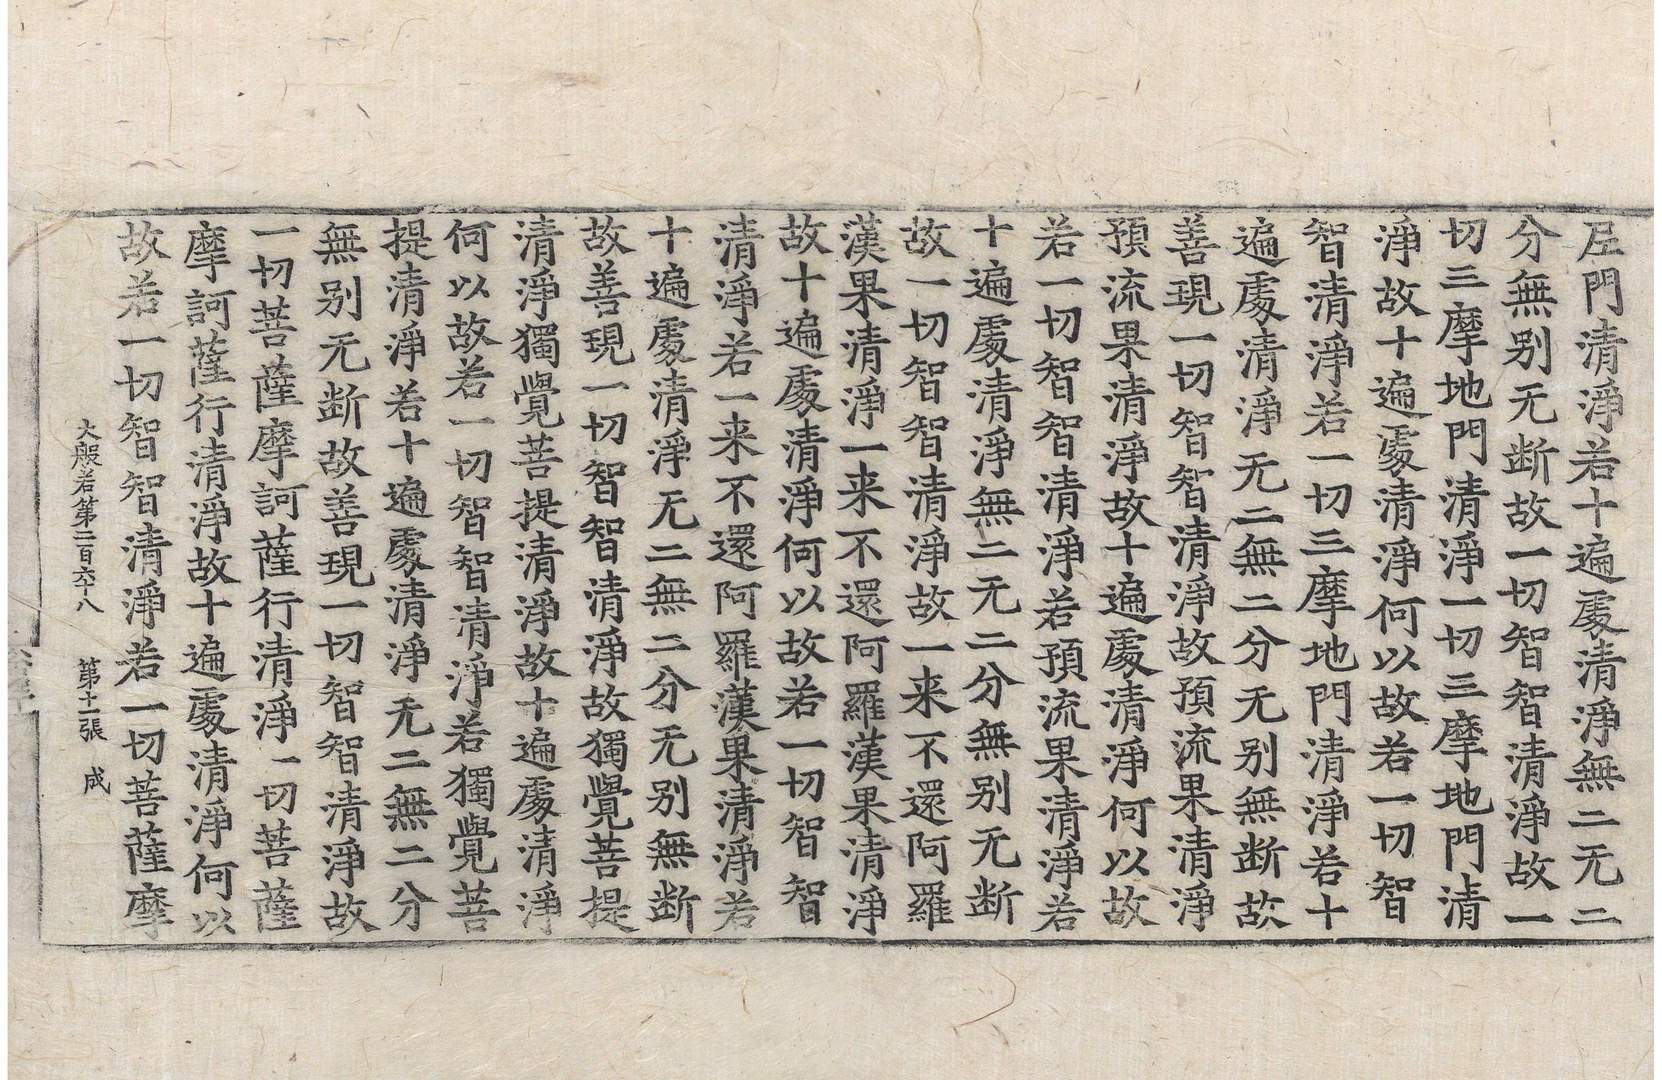 尼門清淨若十遍處清淨無二无二
分無別无断故一切智智清淨故一
切三摩地門清淨一切三摩地門清
淨故十遍處清淨何以故若一切智
智清淨若一切三摩地門清淨若十
遍處清淨无二無二分无別無断故
善現一切智智清淨故預流果清淨
預流果清淨故十遍處清淨何以故
若一切智智清淨若預流果清淨若
十遍處清淨無二无二分無別无断
故一切智智清淨故一来不還阿羅
漢果清淨一来不還阿羅漢果清淨
故十遍處清淨何以故若一切智智
清淨若一来不還阿羅漢果清淨若
十遍處清淨无二無二分无別無断
故善現一切智智清淨故獨覺菩提
清淨獨覺菩提清淨故十遍處清淨
何以故若一切智智清淨若獨覺菩
提清淨若十遍處清淨无二無二分
無別无断故善現一切智智清淨故
一切菩薩摩訶薩行清淨一切菩薩
摩訶薩行清淨故十遍處清淨何以
故若一切智智清淨若一切菩薩摩
大般若第二百六十八 第十一張 成